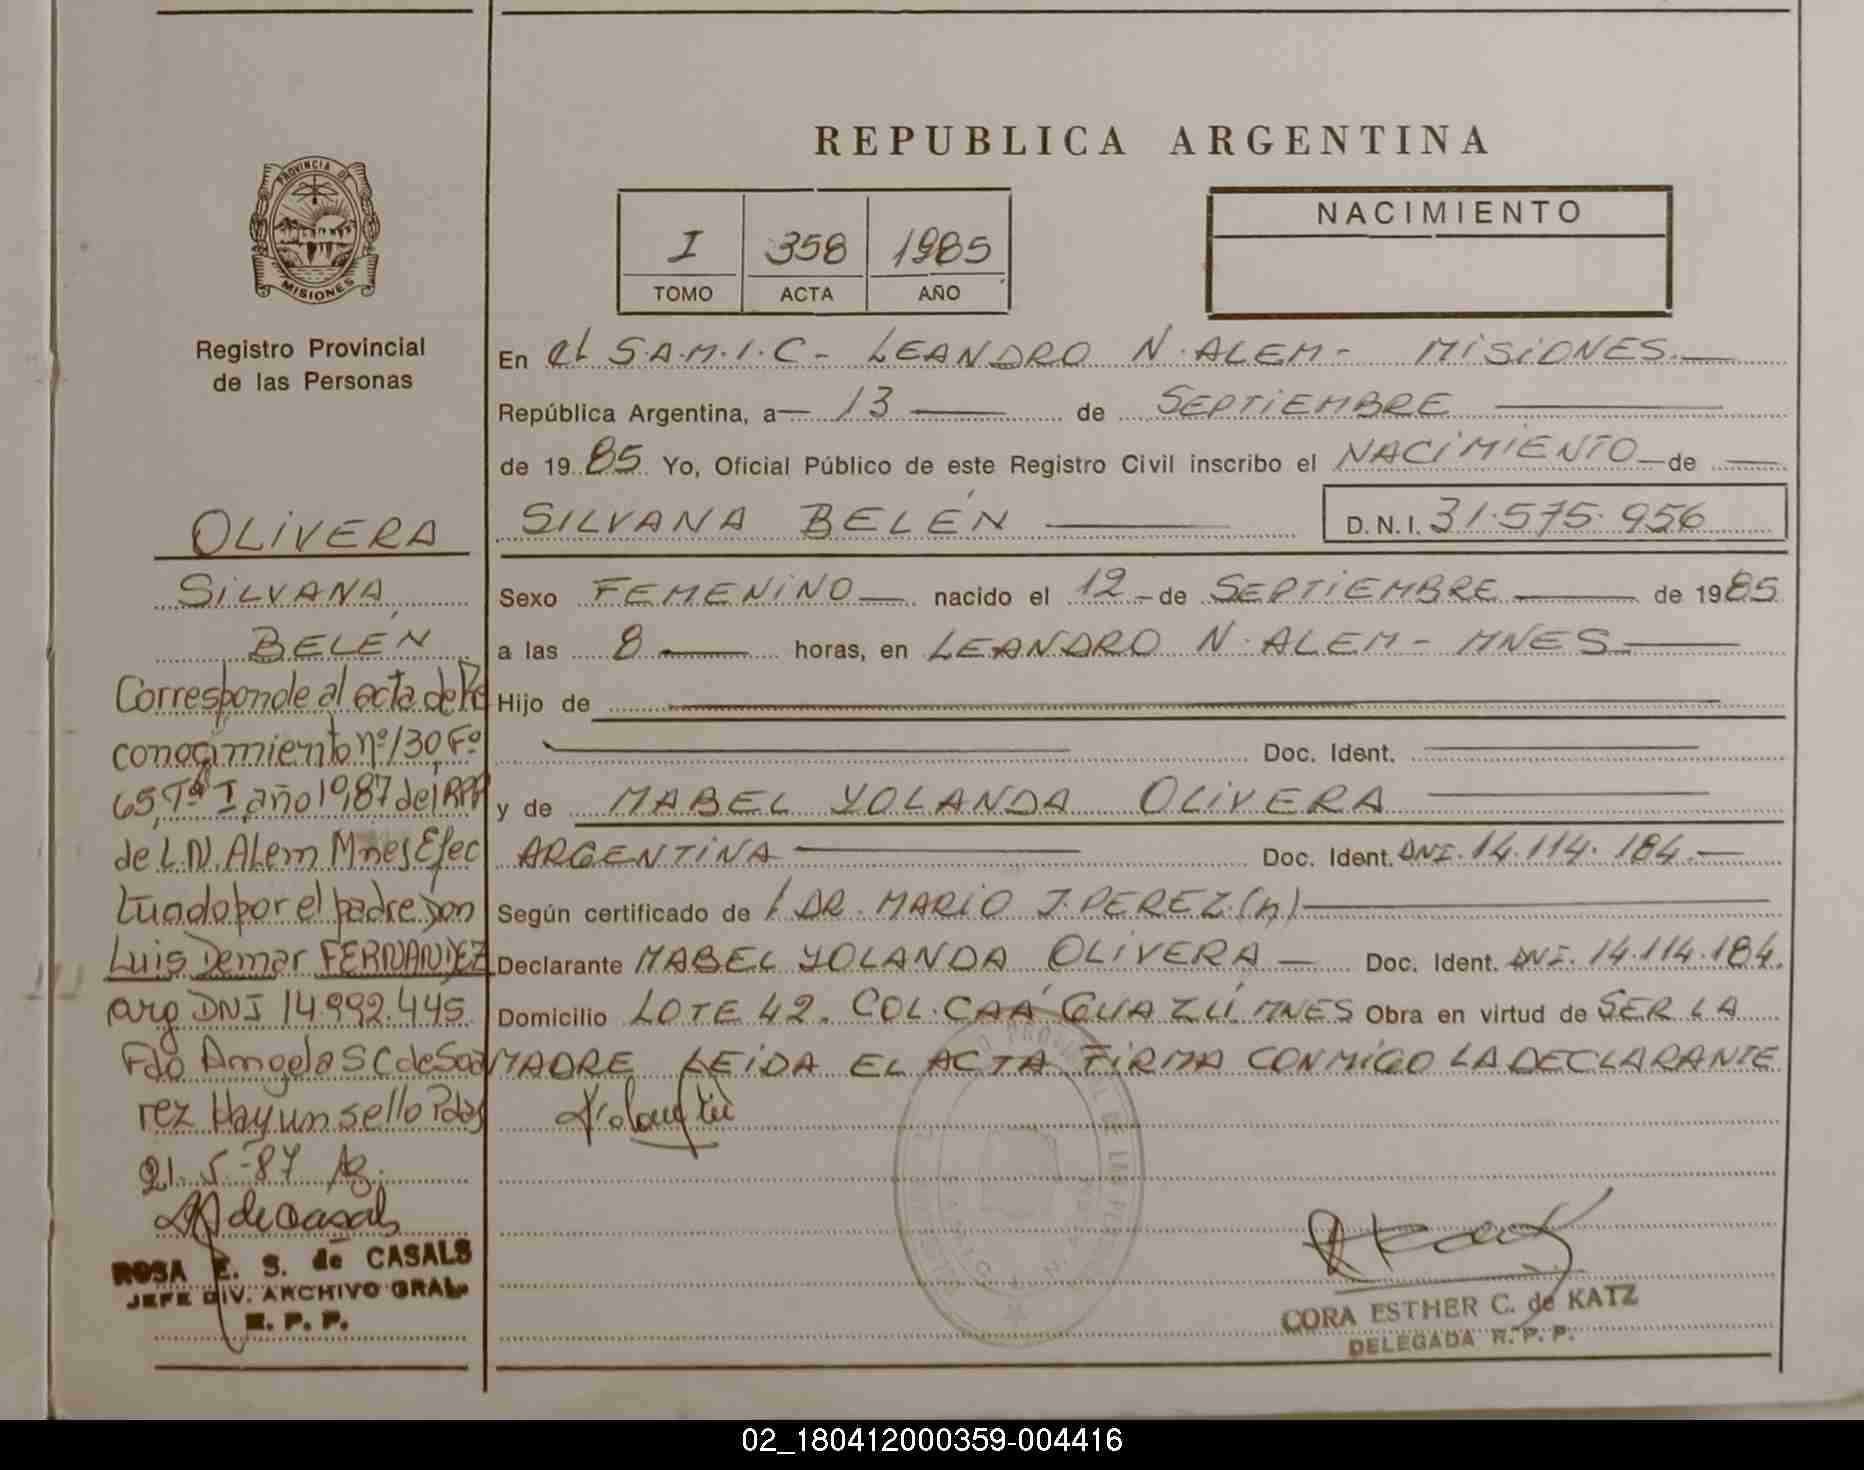 REPUBLICA ARGENTINA
PROVINCIA DE
MISIONES
Registro Provincial
de las Personas
I 358 1985
TOMO ACTA AÑO
NACIMIENTO
En el S.A.M.I.C- LEANDRO N. ALEM- MISIONES.
República Argentina, a 13 de SEPTIEMBRE
de 1985 Yo, Oficial Público de este Registro Civil inscribo el NACIMIENTO de
SILVANA BELÉN D.N.I. 31.575.956
Sexo FEMENINO nacido el 12 de SEPTIEMBRE de 1985
a las 8 horas, en LEANDRO N. ALEM- MNES
Hijo de
Doc. Ident.
y de MABEL YOLANDA OLIVERA
ARGENTINA Doc. Ident. DNI. 14.114.184.
Según certificado de DR. MARIO J. PEREZ (h)
Declarante MABEL YOLANDA OLIVERA Doc. Ident. DNI. 14.114.184.
Domicilio LOTE 42. COL. CAÁ GUAZÚ. MNES Obra en virtud de SER LA
MADRE LEIDA EL ACTA FIRMA CONMIGO LA DECLARANTE
CORA ESTHER C. de KATZ
DELEGADA R. P. P.
OLIVERA
SILVANA
BELÉN
Corresponde al acta de Re
conocimiento nº 130, Fº
65, Tº I, año 1987 del RPP
de L.N. Alem Mnes Efec
tuado por el padre Don
Luis Demar FERNANDEZ
arg DNI 14.992.445.
Fdo Angela S C de Soa
rez Hay un sello Pdas
21-5-87
de Casals
ROSA E. S. de CASALS
JEFE DIV. ARCHIVO GRAL.
R. P. P.
02_180412000359-004416